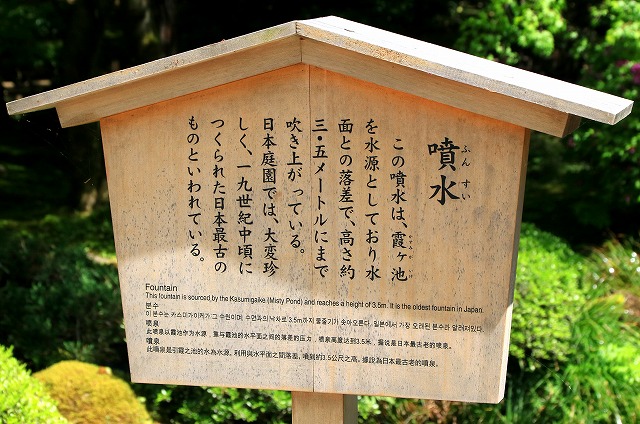 噴水
ふんすい
この噴水は、霞ヶ池
かすみがいけ
を水源としており水
面との落差で、高さ約
三・五メートルにまで
吹き上がっている。
日本庭園では、大変珍
しく、一九世紀中頃に
つくられた日本最古の
ものといわれている。
Fountain
This fountain is sourced by the Kasumigaike (Misty Pond) and reaches a height of 3.5m. It is the oldest fountain in Japan.
분수
이 분수는 카스미가이케가 그 수원이며, 수면과의 낙차로 3.5m까지 물줄기가 솟아오른다. 일본에서 가장 오래된 분수라 알려져있다.
喷泉
此喷泉以霞池作为水源，靠与霞池的水平面之间的落差的压力，喷泉高度达到3.5米，据说是日本最古老的喷泉。
噴泉
此噴泉是引霞之池的水為水源。利用與水平面之間落差，噴到約3.5公尺之高。據說為日本最古老的噴泉。